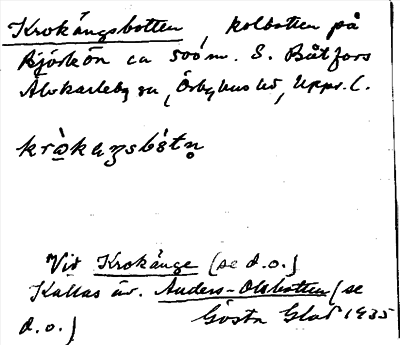 Krokängsbotten, kolbotten på
Björkön ca 500 m. S. Båtfors
Älvkarleby sn, Örbyhus hd, Upps. l.
Vid Krokänge (se d.o.)
Kallas äv. Anders-Olsbotten (se
d.o.) Gösta Glad 1935